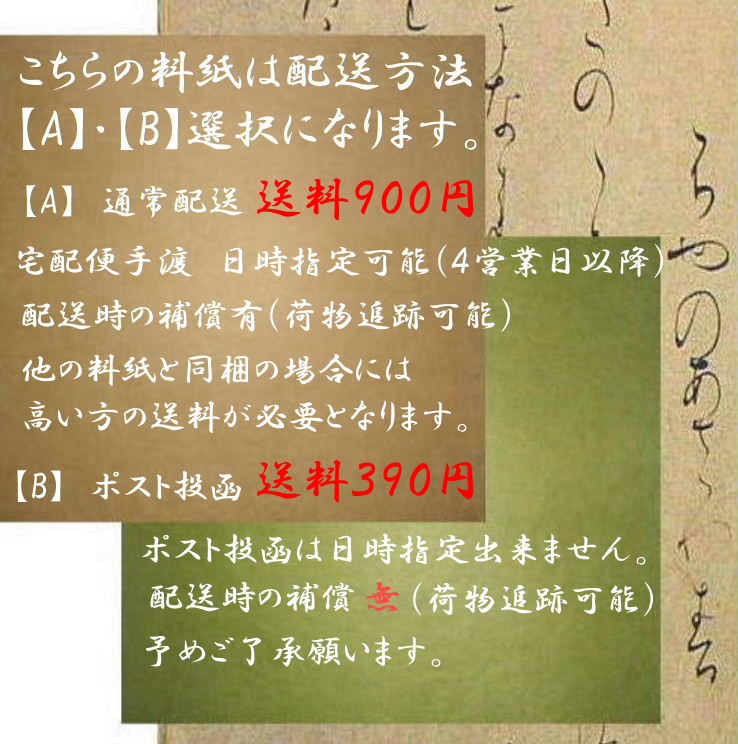 こちらの料紙は配送方法
【A】・【B】選択になります。
【A】 通常配送 送料900円
宅配便手渡 日時指定可能(4営業日以降)
配送時の補償有(荷物追跡可能)
他の料紙と同梱の場合には
高い方の送料が必要となります。
【B】 ポスト投函 送料390円
ポスト投函は日時指定出来ません。
配送時の補償 無 (荷物追跡可能)
予めご了承願います。